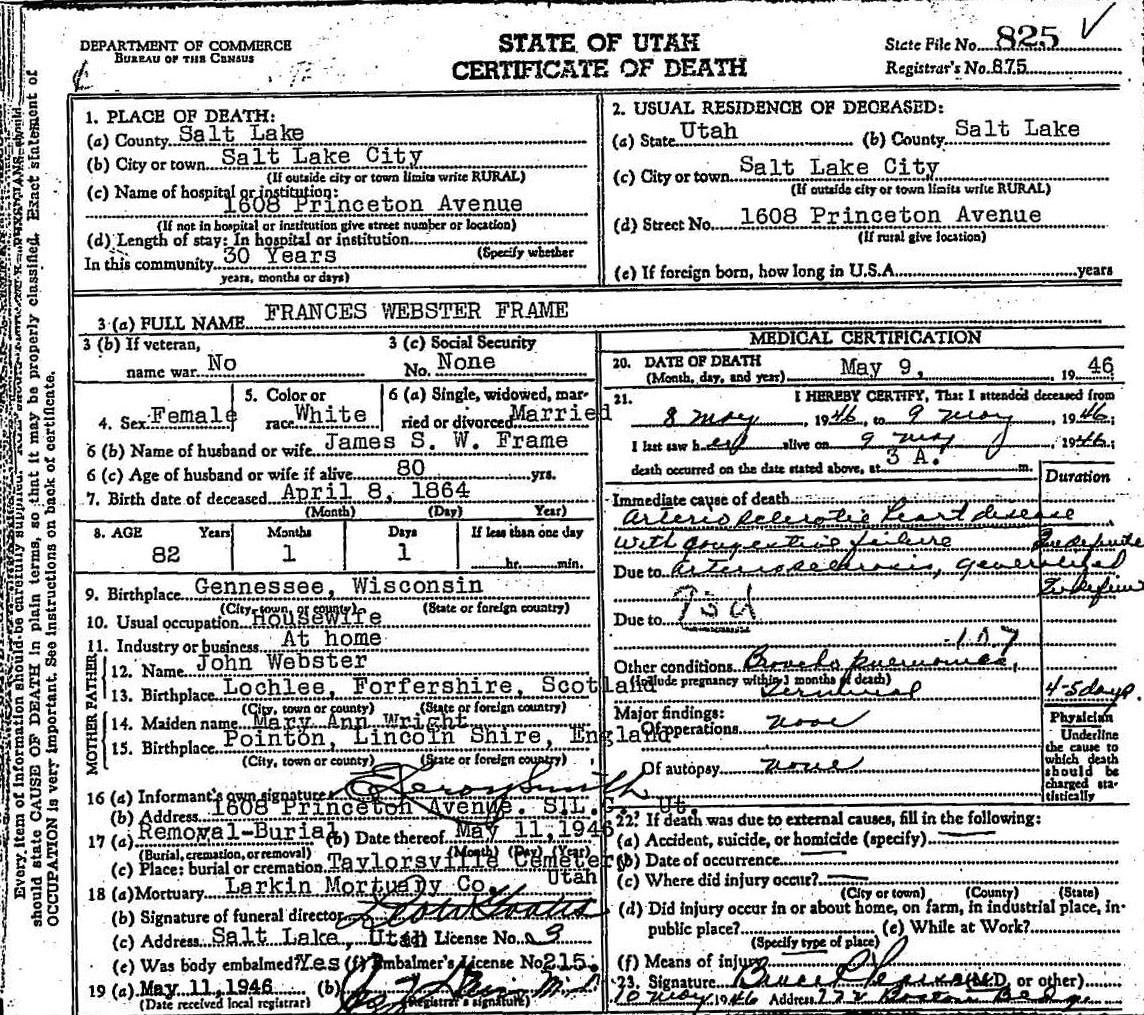 DEPARTMENT OF COMMERCE
BUREAU OF THE CENSUS
STATE OF UTAH
CERTIFICATE OF DEATH
State File No. 825
Registrar's No. 875
Every item of information should be carefully supplied. should state CAUSE OF DEATH in plain terms, so that it may be properly classified. Exact statement of
OCCUPATION is very important. See instructions on back of certificate.
1. PLACE OF DEATH:
(a) County Salt Lake
(b) City or town Salt Lake City
(If outside city or town limits write RURAL)
(c) Name of hospital or institution:
1608 Princeton Avenue
(If not in hospital or institution give street number or location)
(d) Length of stay: In hospital or institution
(Specify whether
In this community 30 Years
years, months or days)
2. USUAL RESIDENCE OF DECEASED:
(a) State Utah (b) County Salt Lake
(c) City or town Salt Lake City
(If outside city or town limits write RURAL)
(d) Street No. 1608 Princeton Avenue
(If rural give location)
(e) If foreign born, how long in U.S.A. years
3 (a) FULL NAME FRANCES WEBSTER FRAME
3 (b) If veteran,
name war. No
3 (c) Social Security
No. None
4. Sex Female
5. Color or
race White
6 (a) Single, widowed, mar-
ried or divorced Married
6 (b) Name of husband or wife James S. W. Frame
6 (c) Age of husband or wife if alive 80 yrs.
7. Birth date of deceased April 8, 1864
(Month) (Day) Year)
8. AGE Years Months Days If less than one day
82 1 1 hr. min.
9. Birthplace Gennessee, Wisconsin
(City, town, or county) (State or foreign country)
10. Usual occupation Housewife
11. Industry or business At home
FATHER
12. Name John Webster
13. Birthplace Lochlee, Forfershire, Scotland
(City, town or county) (State or foreign country)
MOTHER
14. Maiden name Mary Ann Wright
15. Birthplace Pointon, Lincoln Shire, England
(City, town or county) (State or foreign country)
16 (a) Informant's own signature Smith
(b) Address 1608 Princeton Avenue. S.L.C. Ut.
17 (a) Removal-Burial (b) Date thereof May 11, 1946
(Burial, cremation, or removal) (Month) (Day) (Year)
(c) Place: burial or cremation Taylorsville Cemetery
Utah
18 (a) Mortuary Larkin Mortuary Co.
(b) Signature of funeral director
(c) Address Salt Lake, Utah (d) License No. 3
(e) Was body embalmed? Yes (f) Embalmer's License No 215.
19 (a) May 11, 1946 (b) M.D.
(Date received local registrar) (Registrar's signature)
MEDICAL CERTIFICATION
20. DATE OF DEATH
(Month, day, and year) May 9, 19 46
21. I HEREBY CERTIFY, That I attended deceased from
8 May, 1946, to 9 May, 1946;
I last saw her alive on 9 May, 1946;
death occurred on the date stated above, at 3 A. m.
Duration
Immediate cause of death
Arteriosclerotic heart disease
with congestive failure Indefinite
Due to arteriosclerosis, generalized
Indefinite
Due to
107
Other conditions Broncho pneumonia,
(Include pregnancy within 3 months of death)
terminal 4-5 days
Major findings:
Of operations none
Of autopsy none
Physician
Underline
the cause to
which death
should be
charged sta-
tistically
22. If death was due to external causes, fill in the following:
(a) Accident, suicide, or homicide (specify)
(b) Date of occurrence
(c) Where did injury occur?
(City or town) (County) (State)
(d) Did injury occur in or about home, on farm, in industrial place, in-
public place? (e) While at Work?
(Specify type of place)
(f) Means of injury
23. Signature Bruce (M.D. or other)
10 May 1946 Address Boston Bldg